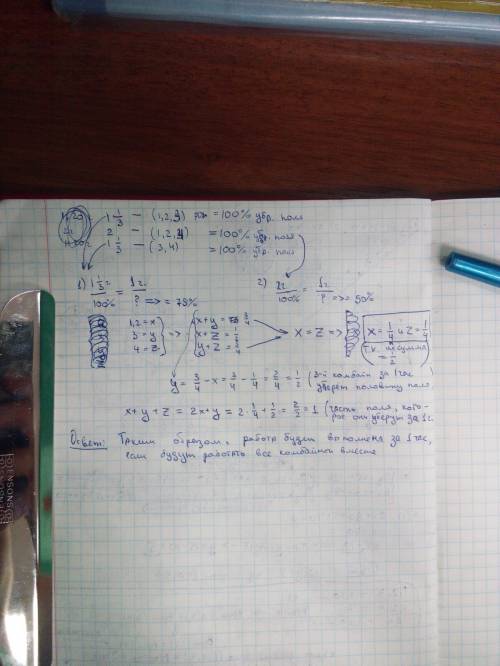 1 1/3 — (1,2,3) = 100% убр. поля
2 — (1,2,4) = 100% убр. поля
1 1/3 — (3,4) = 100% убр. поля
1) 1 1/3 / 100% = 1ч. / ? => = 75%
2) 2ч. / 100% = 1ч. / ? => = 50%
1,2 = x
3 = y
4 = z
=>
x+y = 3/4
x+z = 1/2
y+z = 3/4
x = z =>
x = 1/4 и z = 1/4
т.к. их сумма = 1/2
y = 3/4 - x = 3/4 - 1/4 = 2/4 = 1/2 (3-й комбайн за 1 час уберет половину поля
x+y+z = 2x+y = 2·1/4 + 1/2 = 2/2 = 1 (часть поля, кото-
рое они уберут за 1ч.
Ответ: Таким образом, работа будет выполнена за 1 час,
если будут работать все комбайны вместе